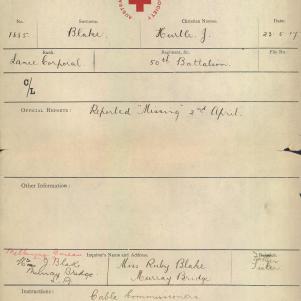 AUSTRA
SOCIETY
No. Surname. Christian Names. Date.
1885. Blake. Hurtle J. 22.5.17
Rank. Regiment, &c. File No.
Lance Corporal. 50th Battalion.
C/L
OFFICIAL REPORTS: Reported "Missing" 2nd April.
Other Information:
Inquirer's Name and Address.
Melbourne Bureau
J. Blake
Murray Bridge
S. A.
Miss Ruby Blake
Murray Bridge
Sister
Instructions: Cable Commissioners